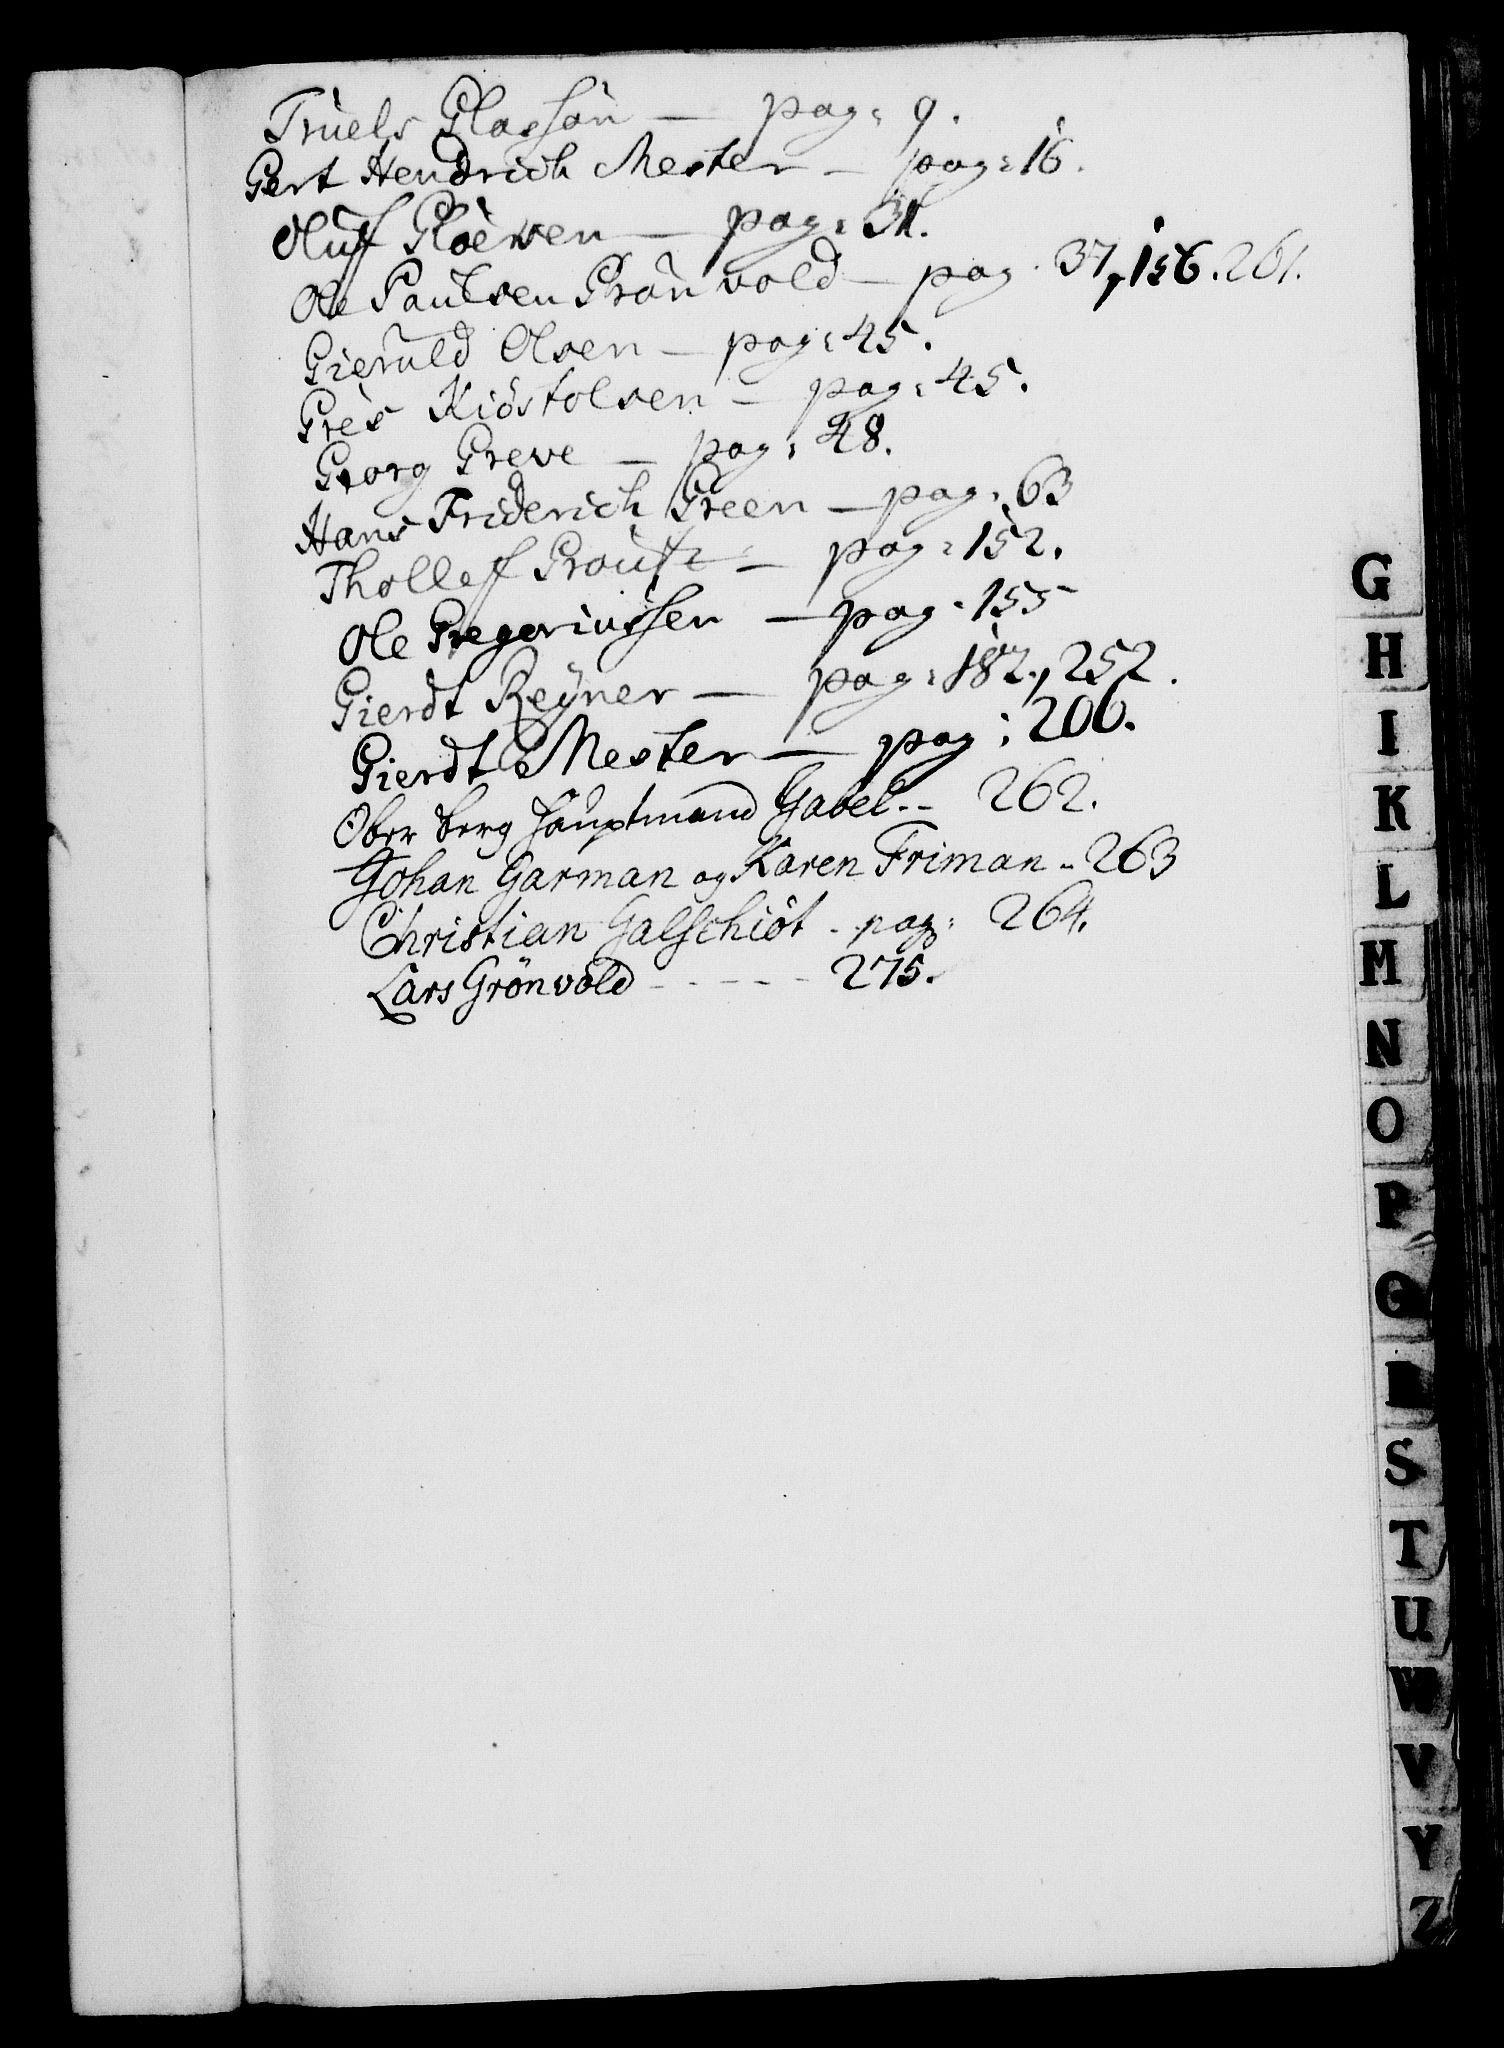 Truels Glassøn — pag: 9.
Gert Hendrich Mester — pag: 16.
Oluff Gloersen — pag: 31.
Ole Paulsen Grønvold — pag. 37, 156. 261.
Gieruld Olsen — pag: 45.
Gres Kiöstolsen — pag: 45.
Georg Greve — pag: 48.
Hans Friderich Green — pag: 63
Tholleff — pag: 152.
Ole Gregoriussen — pag. 155
Gierdt Reyner — pag: 182., 252.
Gierdt Mester — pag: 206.
Ober berg Hauptmand Gabel -- 262.
Johan Garman og Karen Friman - 263
Christian Galschiöt - pag: 264.
Lars Grönvold - - - - - 275.
G
H
I
K
L
M
N
O
P
Q
R
S
T
U
W
V
Y
Z